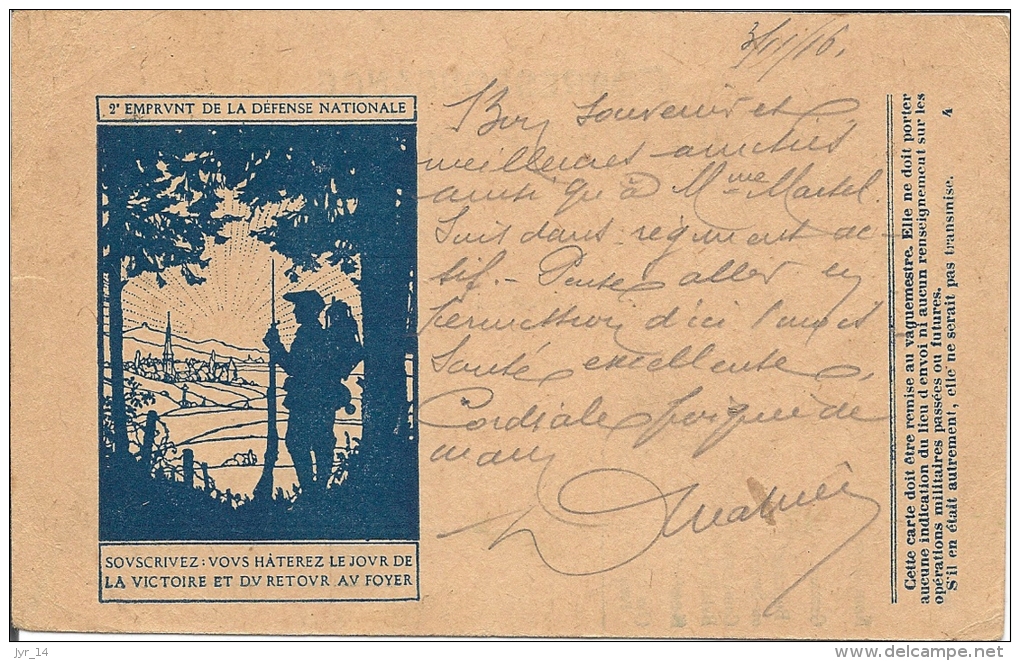 3/11/16.
2e EMPRVNT DE LA DÉFENSE NATIONALE
Bon souvenir et
meilleures amitiés
ainsi qu'à Mme Martel.
Suis dans régiment ac-
tif. - Pense aller en
permission d'ici 1 mois
Santé excellente.
Cordiale poignée de
main
SOVSCRIVEZ : VOVS HÂTEREZ LE JOVR DE
LA VICTOIRE ET DV RETOVR AV FOYER
Cette carte doit être remise au vaguemestre. Elle ne doit porter
aucune indication du lieu d'envoi ni aucun renseignement sur les
opérations militaires passées ou futures.
S'il en était autrement, elle ne serait pas transmise. 4
jyr_14
delcampe.net